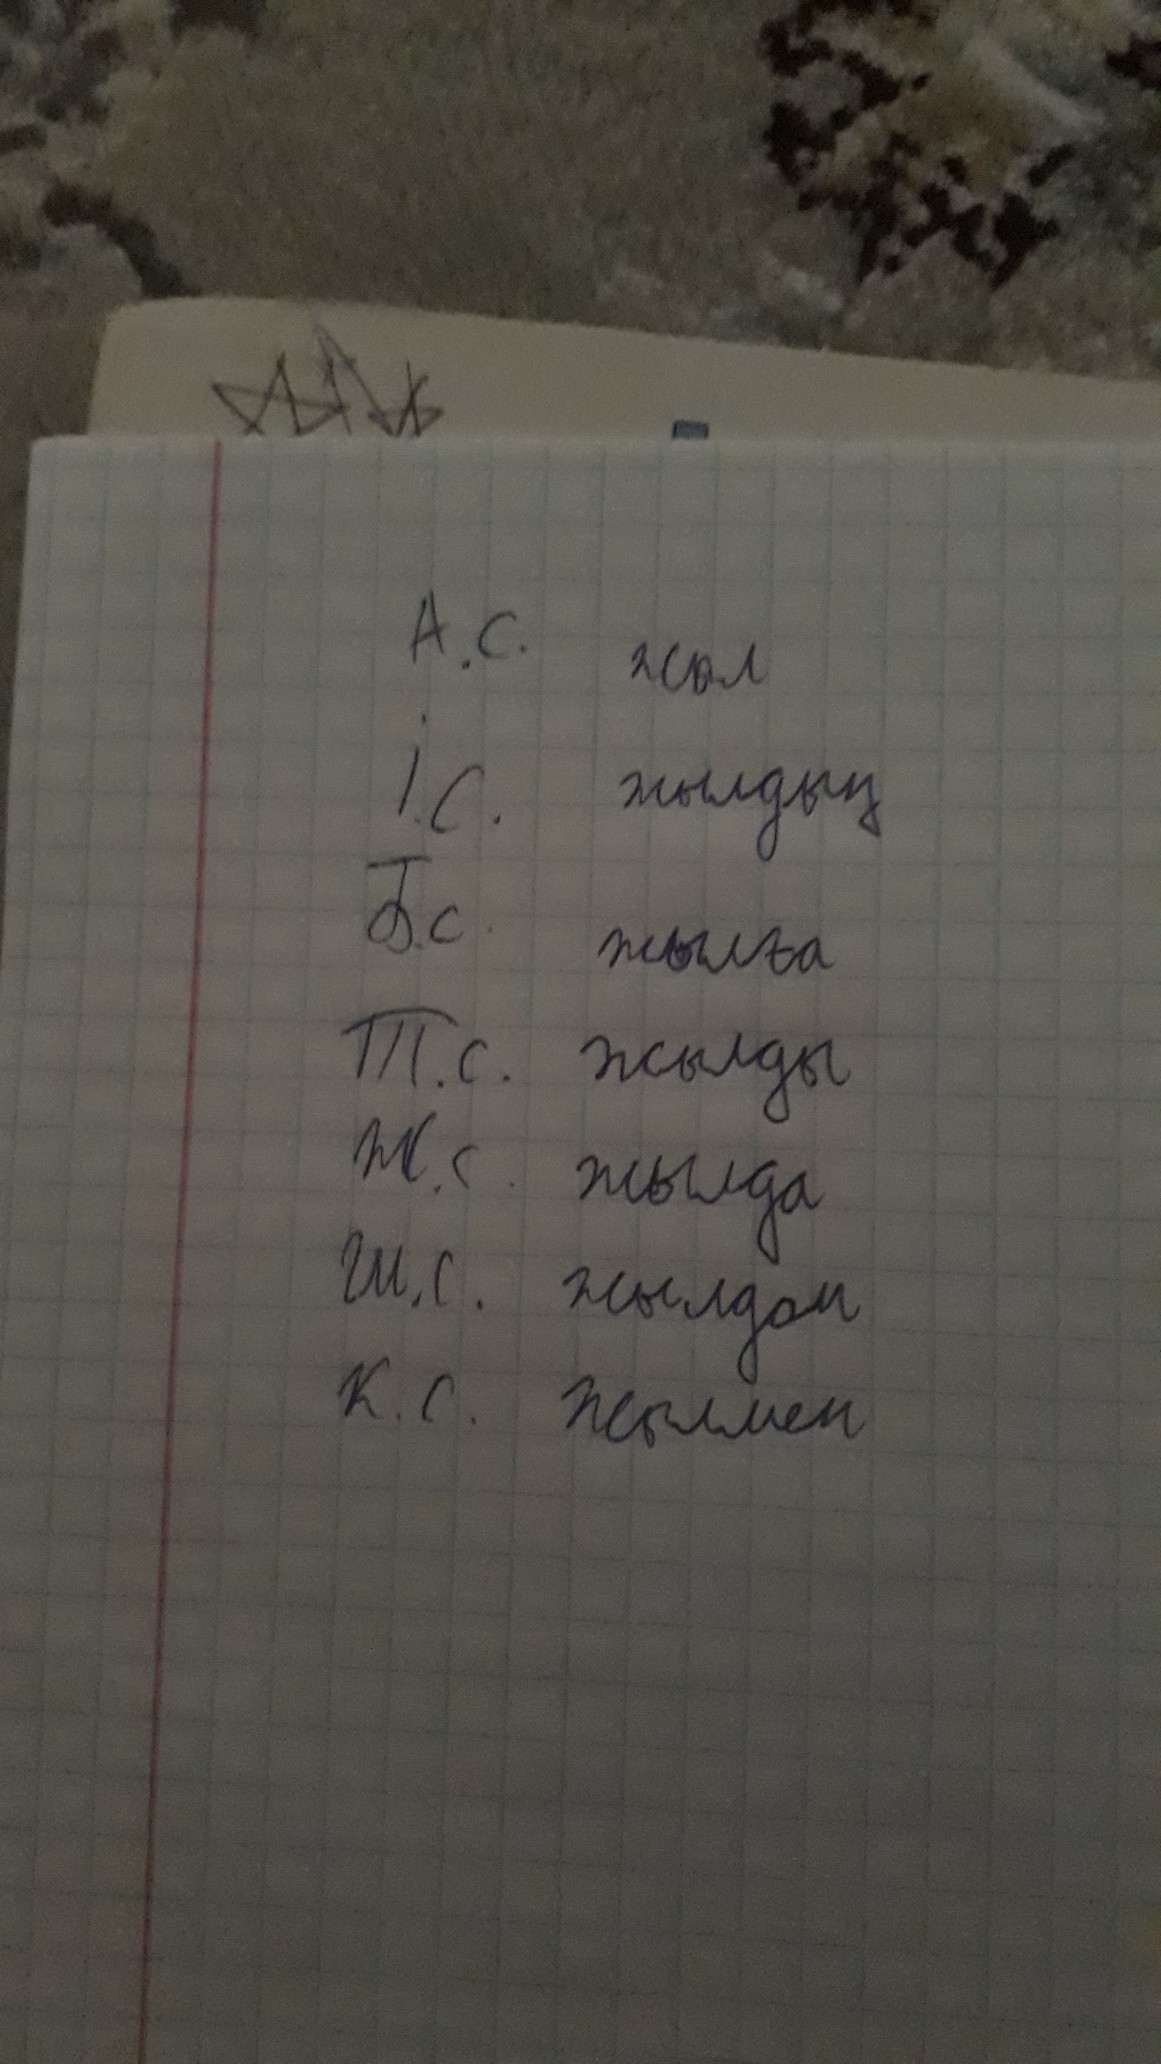 А.С. жыл
І.С. жылдың
Б.с. жылға
Т.с. жылды
Ж.с. жылда
Ш.с. жылдан
К.с. жылмен